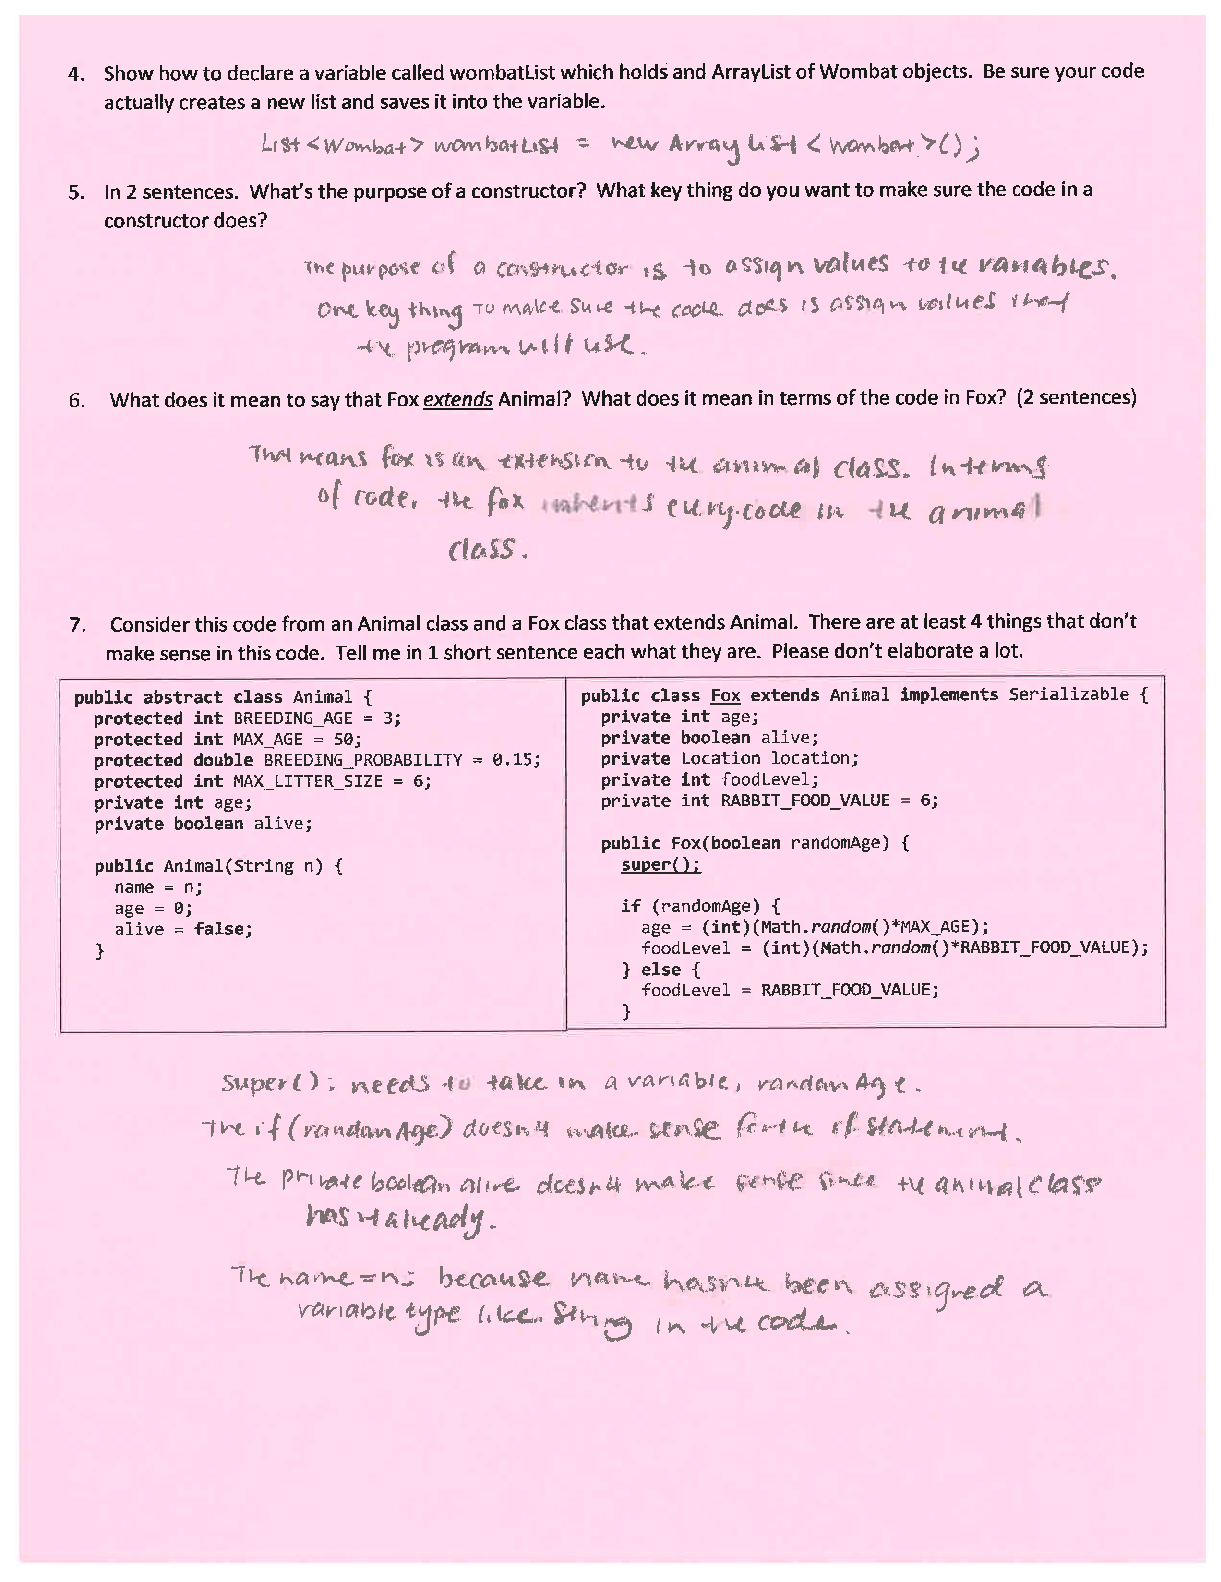 4. Show how to declare a variable called wombatList which holds and ArrayList of Wombat objects. Be sure your code
actually creates a new list and saves it into the variable.
List <Wombat> wombatList = new ArrayList <Wombat>();
5. In 2 sentences. What's the purpose of a constructor? What key thing do you want to make sure the code in a
constructor does?
The purpose of a constructor is to assign values to the variables.
One key thing to make sure the code does is assign values that
the program will use.
6. What does it mean to say that Fox extends Animal? What does it mean in terms of the code in Fox? (2 sentences)
That means fox is an extension to the animal class. In terms
of code, the fox inherits every code in the animal
class.
7. Consider this code from an Animal class and a Fox class that extends Animal. There are at least 4 things that don't
make sense in this code. Tell me in 1 short sentence each what they are. Please don't elaborate a lot.
public abstract class Animal {
protected int BREEDING_AGE = 3;
protected int MAX_AGE = 50;
protected double BREEDING_PROBABILITY = 0.15;
protected int MAX_LITTER_SIZE = 6;
private int age;
private boolean alive;
public Animal(String n) {
name = n;
age = 0;
alive = false;
}
public class Fox extends Animal implements Serializable {
private int age;
private boolean alive;
private Location location;
private int foodLevel;
private int RABBIT_FOOD_VALUE = 6;
public Fox(boolean randomAge) {
super();
if (randomAge) {
age = (int)(Math.random()*MAX_AGE);
foodLevel = (int)(Math.random()*RABBIT_FOOD_VALUE);
} else {
foodLevel = RABBIT_FOOD_VALUE;
}
Super(); needs to take in a variable, randomAge.
The if (randomAge) doesn't make sense for the if statement.
The private boolean alive doesn't make sense since the animal class
has it already.
The name = n; because name hasn't been assigned a
variable type like String in the code.